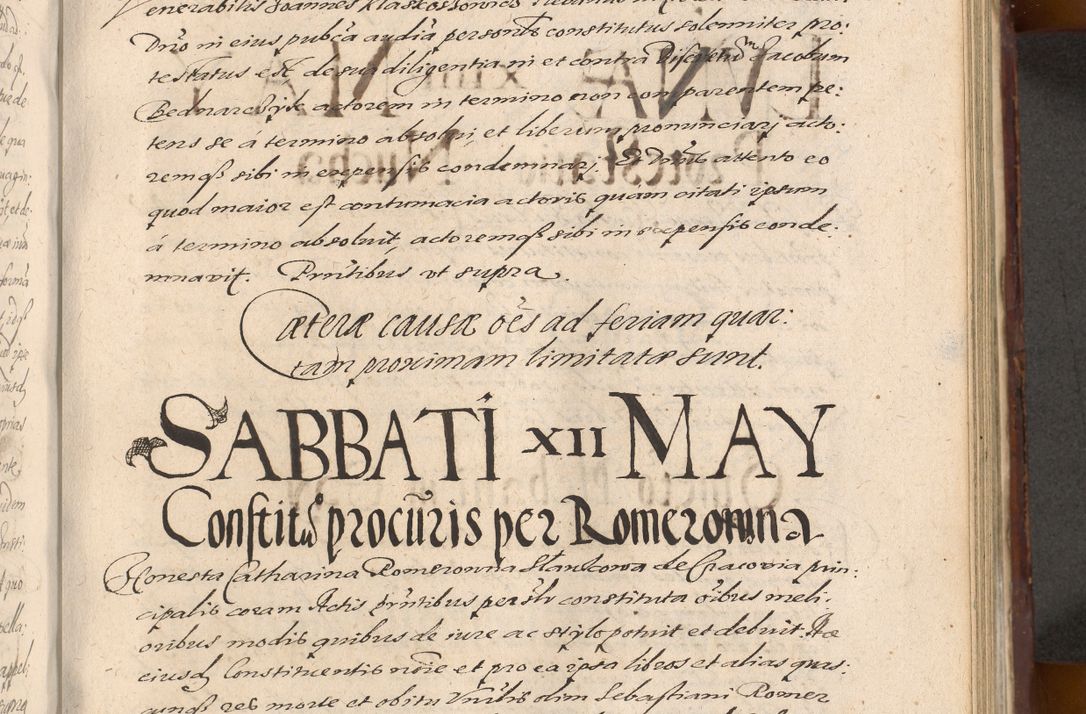 Venerabilis Joannes
Dño in eius pubca audia personlr constitutus solenniter pro:
testatus est, de sua diligentia in et contra Discretum Jacobum
Bednarczyk actorem in termino non comparentem pe:
tens se á termino absolvi, et liberum pronunciarj acto:
remqß sibi in expensis condemnarj. Et Dnus attento eo
quod maior est contumacia actoris quam citati ipsum
á termino absoluit, actoremqß sibi in expensis conde:
mnavit. Prntibus vt supra.
Cæteræ causæ oẽs ad feriam quar:
tam proximam limitatæ sunt.
SABBATI XII MAY
Constitũs procũris per Romerowna
Honesta Catharina Romerowna de Cracovia prin:
cipalis coram Actis prntibus persolr constituta oibus meli:
oribus modis quibus de iure ac stylo potuit et debuit.
eiusd Constituentis noie et pro ea ipsa libros et alias quas:
cunqß res morte et obitu olim Sebastiani Romer